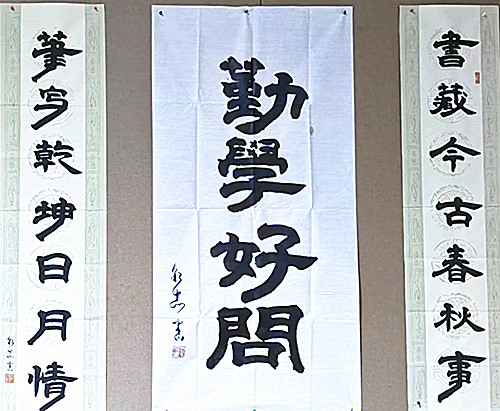 書藏今古春秋事
勤學好問
筆写乾坤日月情